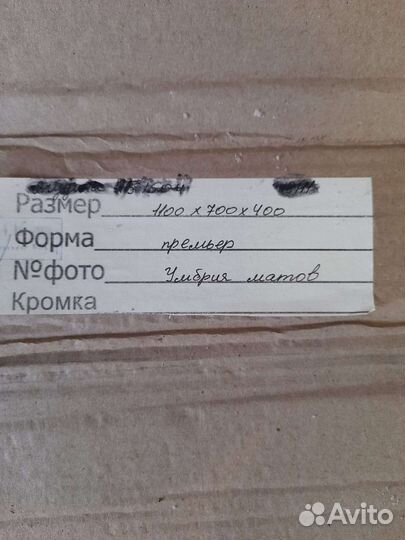 Размер 1100 x 700 x 400
Форма премьер
№фото Умбрия матов
Кромка
Avito